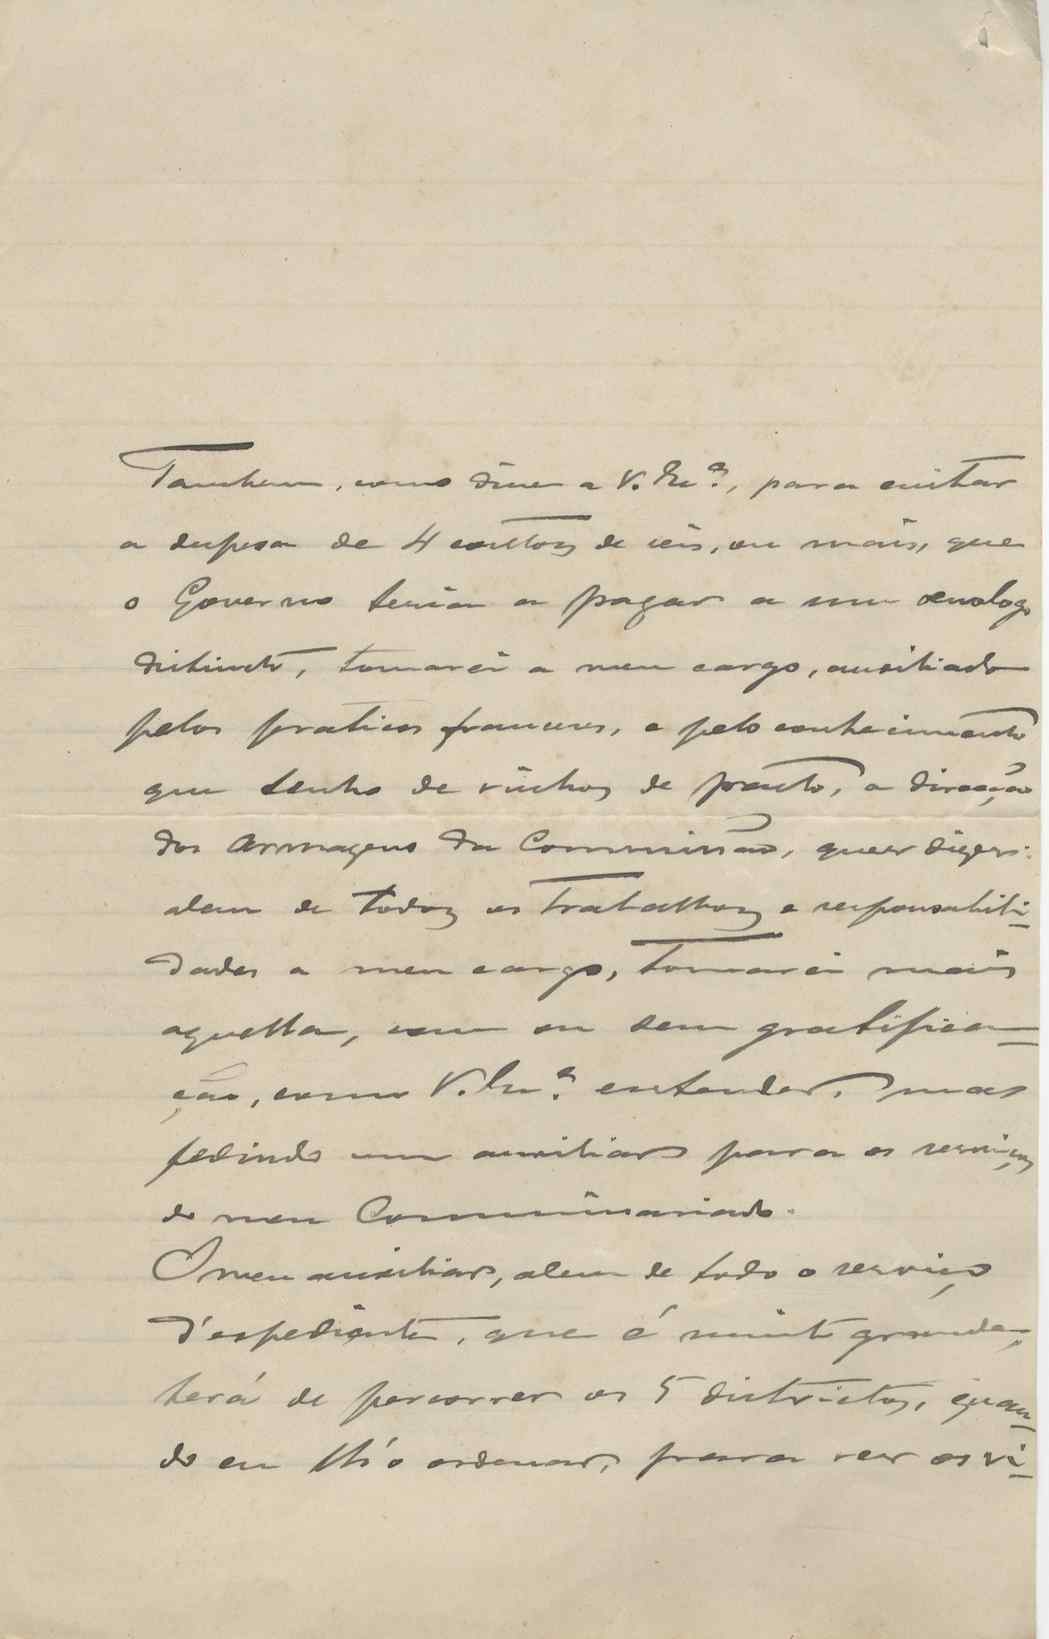 Tambem, como disse a V. Ex.ª, para evitar
a despesa de 4 contos de reis, ou mais, que
o Governo teria a pagar a um œnologo
distincto, tomarei a meu cargo, auxiliado
pelos praticos franceses, e pelo conhecimento
que tenho de vinhos de pasto, a direcção
dos armazens da Commissão, quer dizer:
alem de todos os trabalhos e responsabili-
dades a meu cargo, tomarei mais
aquella, com ou sem gratifica-
ção, como V. Ex.ª entender, mas
pedindo um auxiliar para os serviços
do meu Commissariado.
O meu auxiliar, alem de todo o serviço
d'expediente, que é muito grande,
terá de percorrer os 5 districtos, quan-
do eu lh'o ordenar, para ver os vi-